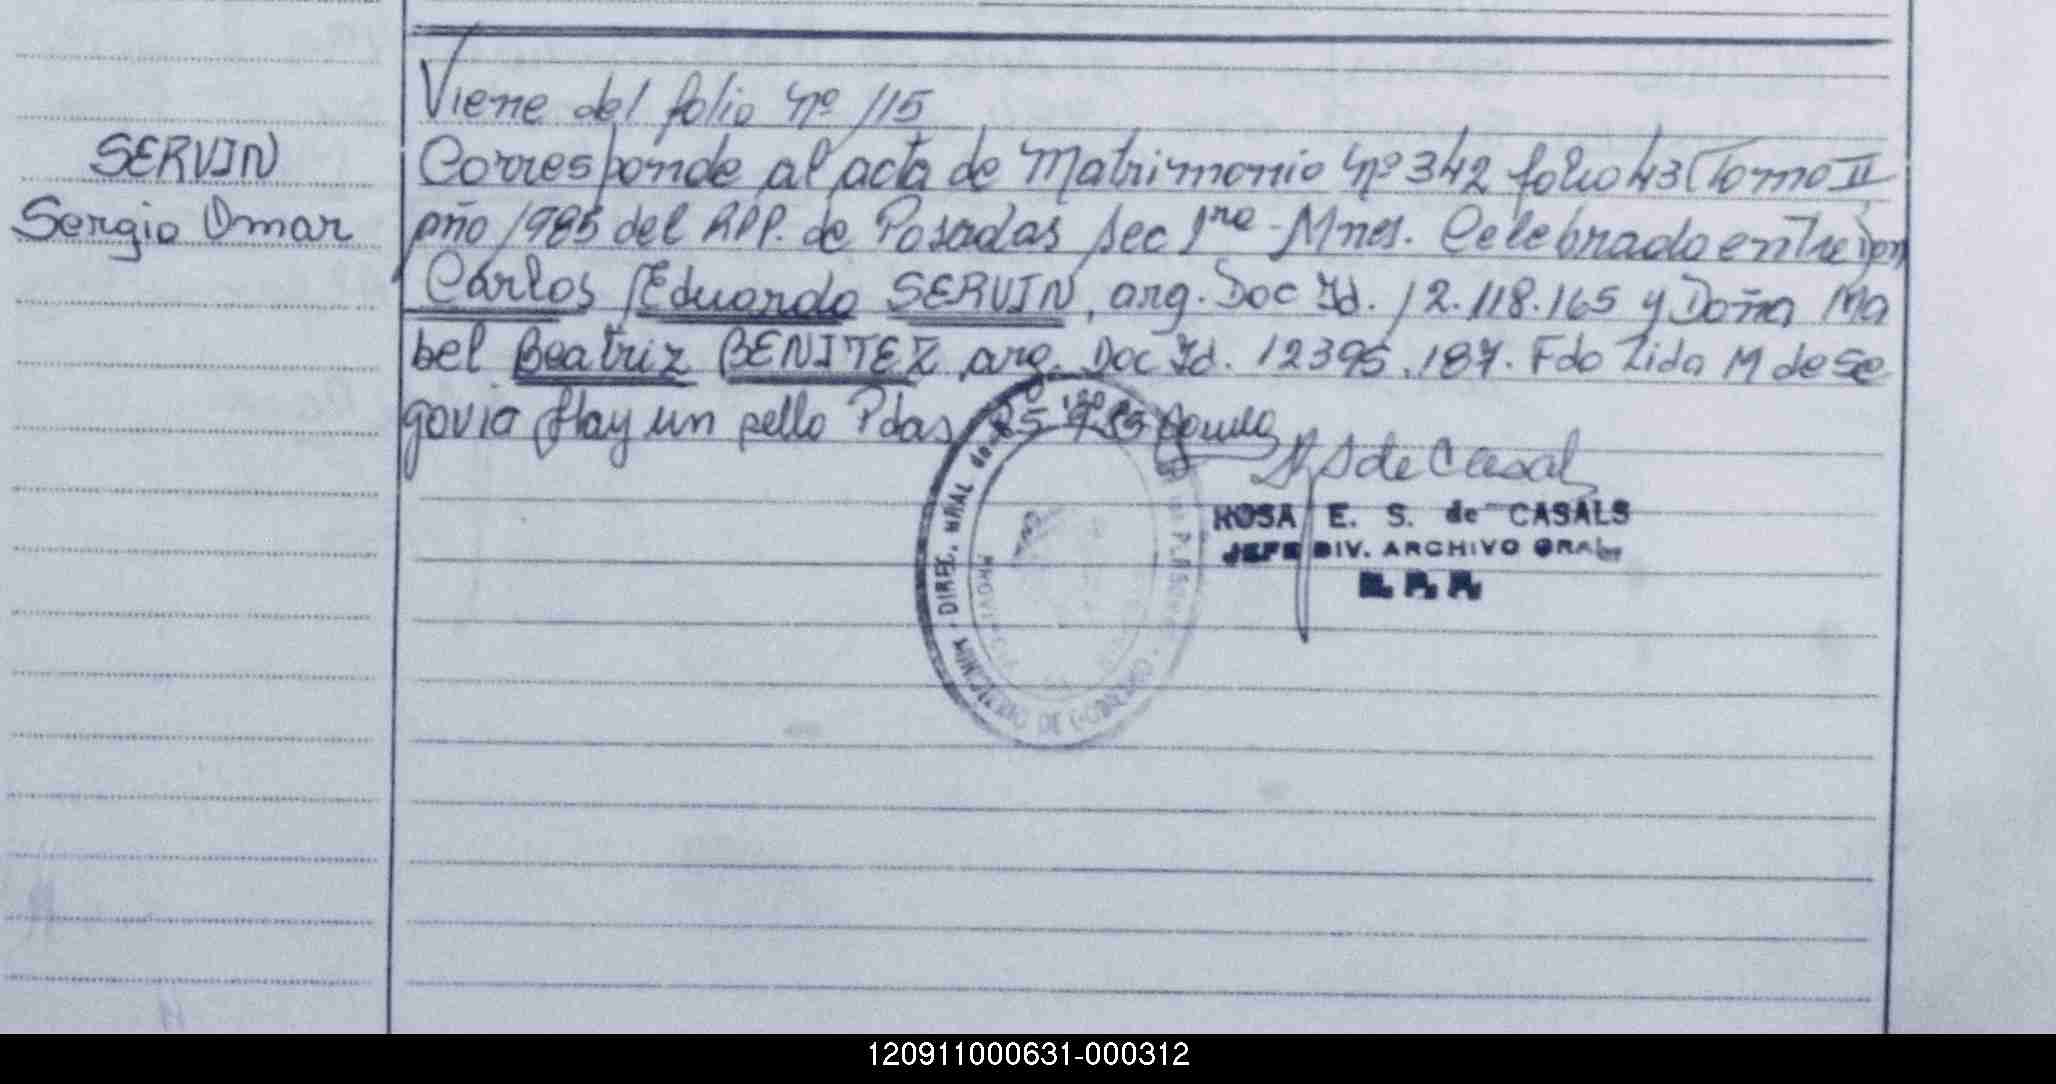 Viene del folio Nº 115
SERVIN
Sergio Omar
Corresponde al acta de Matrimonio Nº 342 folio 43 Tomo II
año 1985 del RPP. de Posadas sec 1ra - Mnes. Celebrado entre Don
Carlos Eduardo SERVIN, arg. Doc Id. 12.118.165 y Doña Ma
bel Beatriz BENITEZ arg. Doc Id. 12395.187. Fdo Lida M de Se
govia Hay un sello Pdas
de Casal
ROSA E. S. de CASALS
JEFE DIV. ARCHIVO GRAL
R. P. P.
MINISTERIO DE GOBIERNO · DIREC. GRAL de
PROVINCIA
120911000631-000312